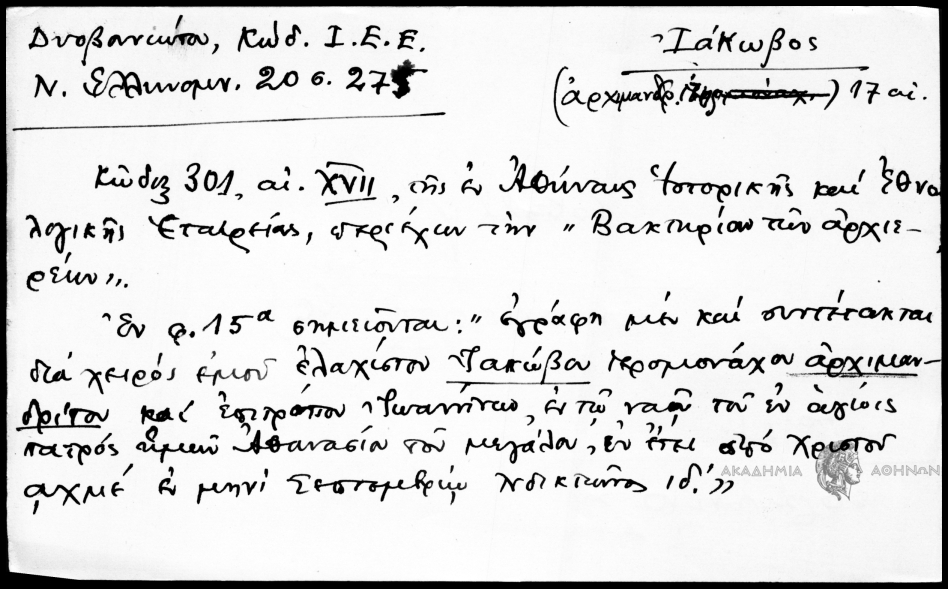 Δυοβουνιώτου, Κώδ. Ι.Ε.Ε.
Ν. Ελληνομν. 20 σ. 275
Ἰάκωβος
(ἀρχιμανδρ.) 17 αἰ.
Κῶδιξ 301, αἰ. XVII, τῆς ἐν Ἀθήναις Ἱστορικῆς καὶ Ἐθνο
λογικῆς Ἑταιρείας, περιέχων τὴν „ Βακτηρίαν τῶν ἀρχιε-
ρέων„.
Ἐν φ. 15α σημειοῦται: „ ἐγράφη μὲν καὶ συντέτακται
διὰ χειρὸς ἐμοῦ ἐλαχίστου Ἰακώβου ἱερομονάχου ἀρχιμαν-
δρίτου καὶ ἐπιτρόπου Ἰωαννίνων, ἐν τῷ ναῷ τοῦ ἐν ἁγίοις
πατρὸς ἡμῶν Ἀθανασίου τοῦ μεγάλου, ἐν ἔτει ἀπὸ Χριστοῦ
͵αχμέ ἐν μηνὶ Σεπτεμβρίῳ Ἰνδικτιῶνος ιδ΄.„
ΑΚΑΔΗΜΙΑ ΑΘΗΝΩΝ